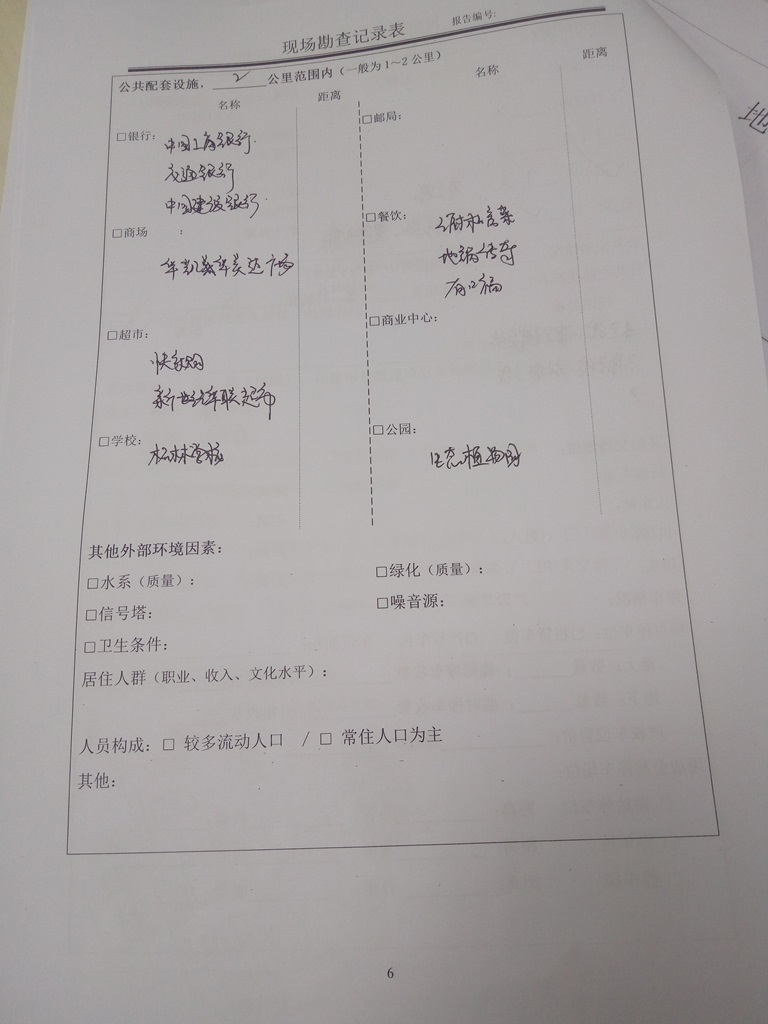 现场勘查记录表
报告编号:
公共配套设施， 2 公里范围内（一般为1～2公里）
名称 距离 名称 距离
□银行: 中国工商银行
交通银行
中国建设银行
□邮局:
□商场 :
华美达广场
□餐饮: 私房菜
地锅传奇
有口福
□超市:
快乐购
新世纪华联超市
□商业中心:
□学校: 松林学校
□公园: 生态植物园
其他外部环境因素:
□水系（质量）: □绿化（质量）:
□信号塔: □噪音源:
□卫生条件:
居住人群（职业、收入、文化水平）:
人员构成: □ 较多流动人口 / □ 常住人口为主
其他:
6
地